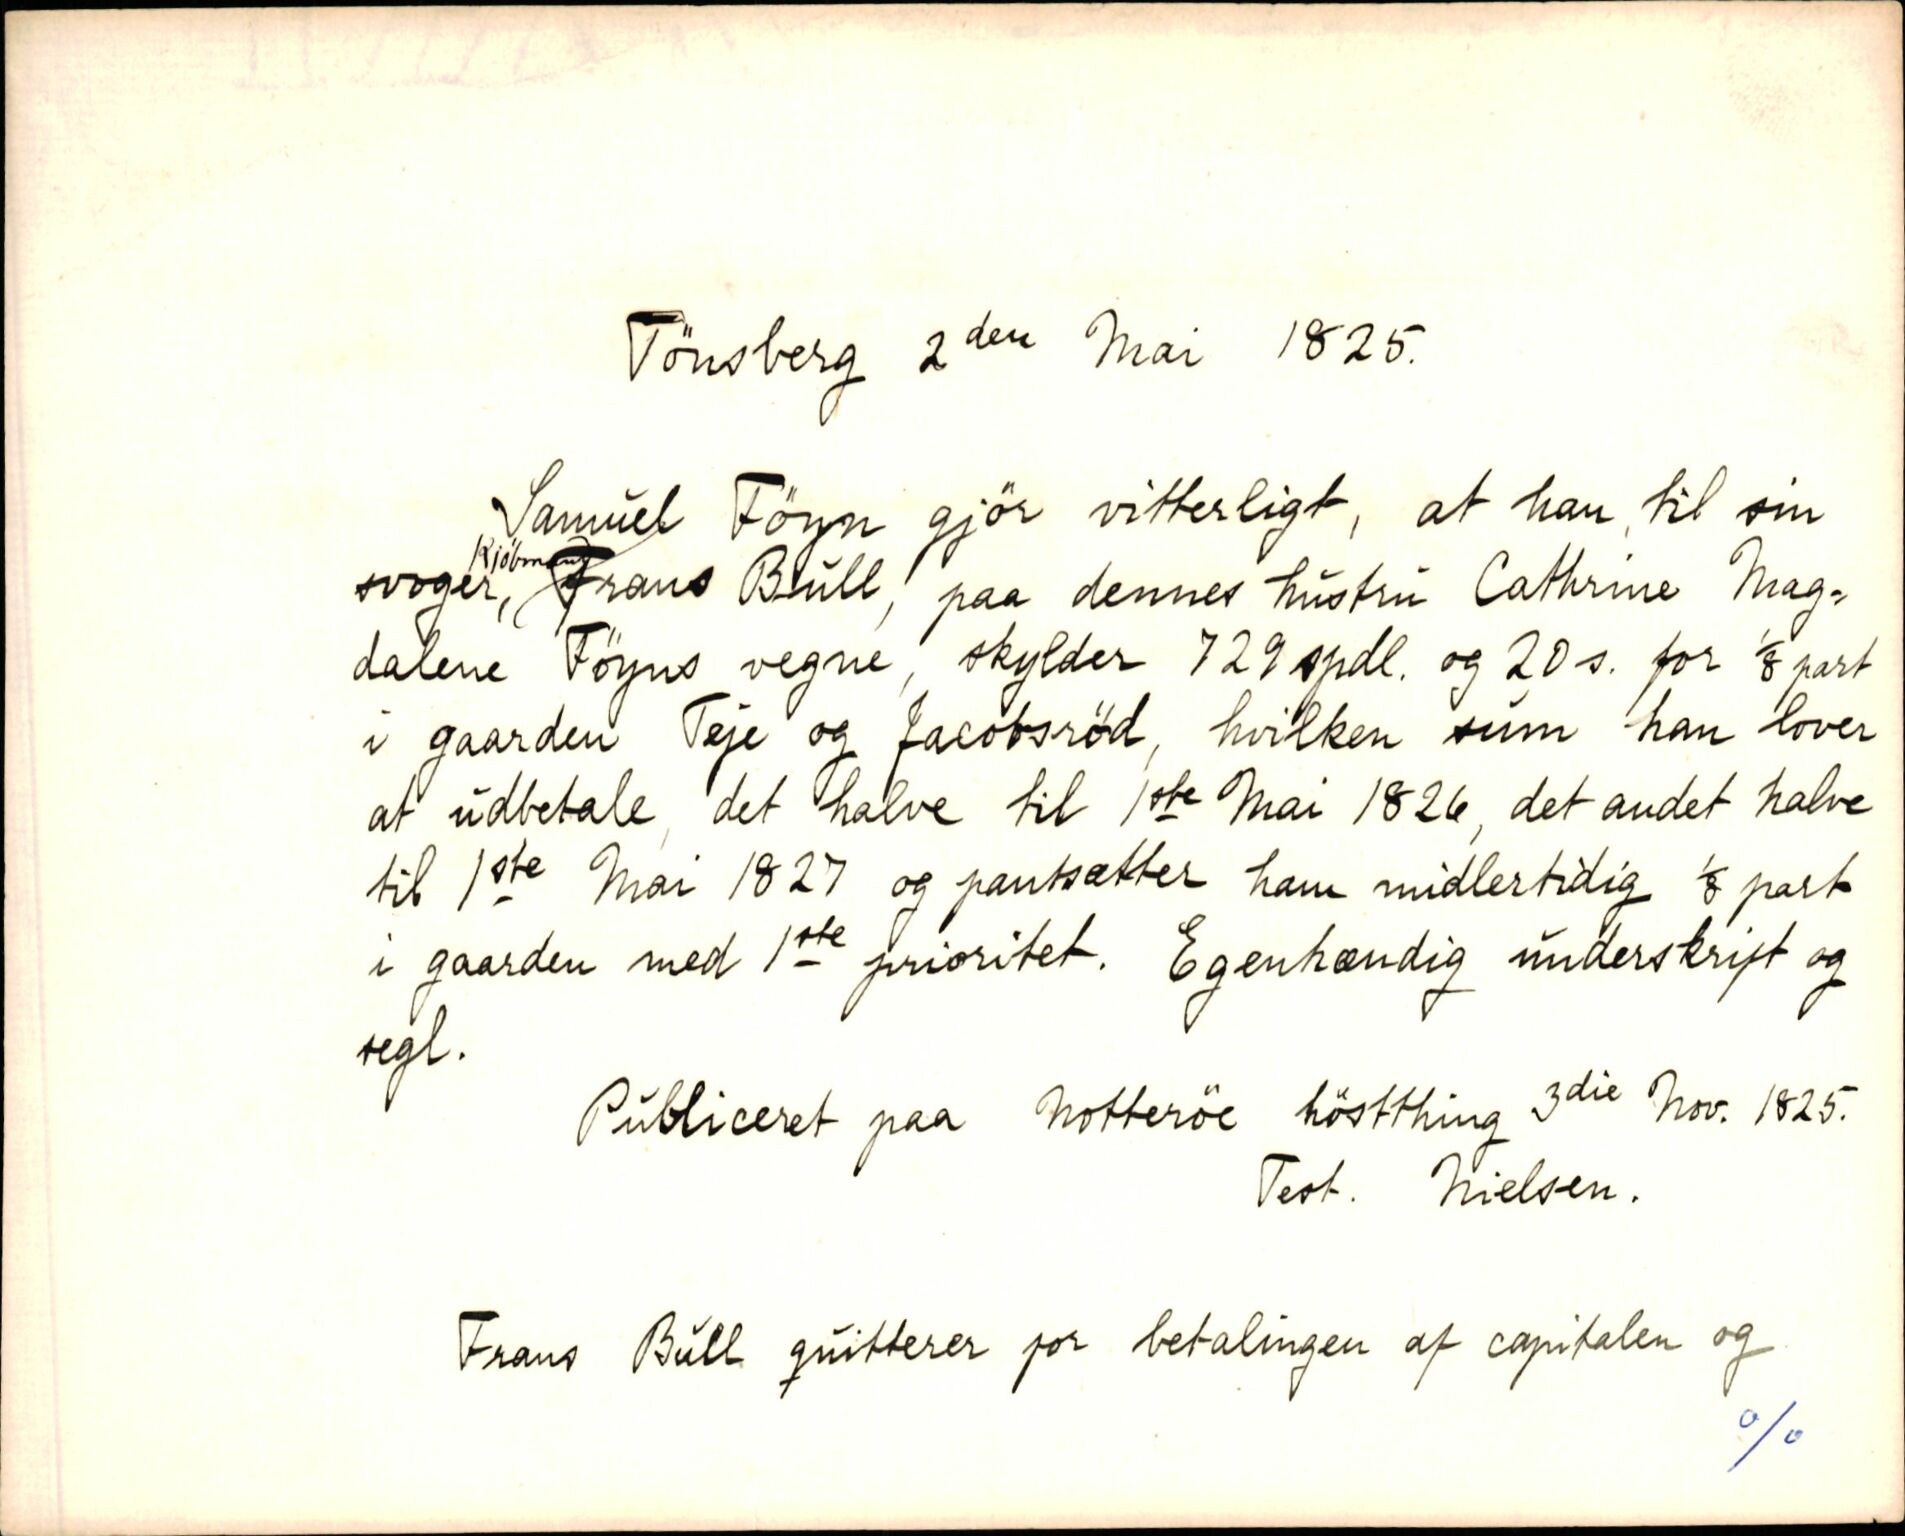 Tönsberg 2den Mai 1825.
Samŭel Föyn gjör vitterligt, at han, til sin
svoger, Kjöbmand Frans Bŭll, paa dennes hŭstrŭ Cathrine Mag-
dalene Föyns vegne, skylder 729 spdl. og 20 s. for 1/8 part
i gaarden Teje og Jacobsröd, hvilken sŭm han lover
at ŭdbetale, det halve til 1ste Mai 1826, det andet halve
til 1ste Mai 1827 og pantsætter ham midlertidig 1/8 part
i gaarden med 1ste prioritet. Egenhændig ŭnderskrift og
segl.
Pŭbliceret paa Notteröe höstthing 3die Nov. 1825.
Test. Nielsen.
Frans Bŭll qŭitterer for betalingen af capitalen og
o/o